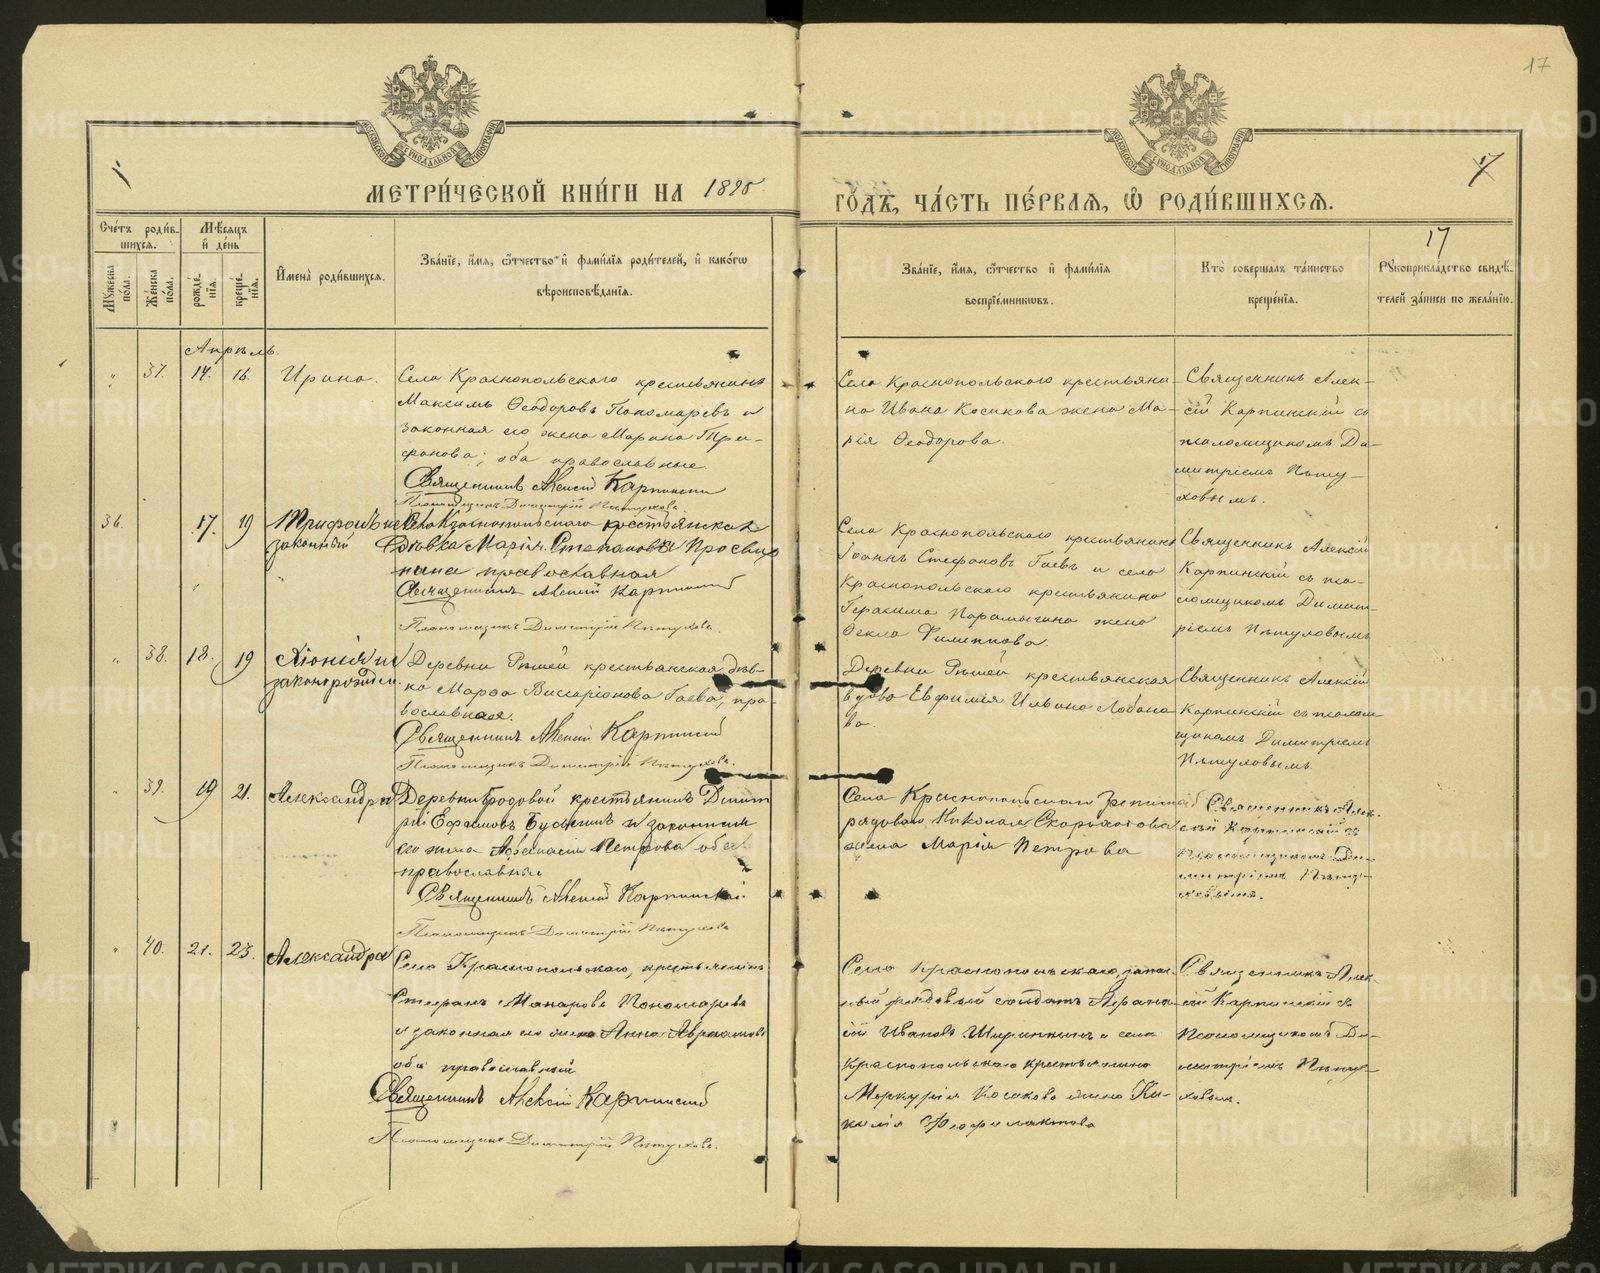 17
МОСКОВСКОЙ СѴНОДАЛЬНОЙ ТИПОГРАФІИ
МОСКОВСКОЙ СѴНОДАЛЬНОЙ ТИПОГРАФІИ
МЕТРИ́ЧЕСКОЙ КНИ́ГИ НА 1895
ГО́ДЪ, ЧА́СТЬ ПЕ́РВАѦ, Ѡ РОДИ́ВШИХСѦ.
17
Сче́тъ роди́в-
шихсѧ.
Мѣ́сѧцъ
и де́нь
Му́жеска по́ла.
Же́нска по́ла.
рожде́нїѧ.
креще́нїѧ.
И҆мена̀ роди́вшихсѧ.
Зва́нїе, и҆́мѧ, ѻ҆́тчество и҆ фами́лїѧ роди́телей, и҆ како́гѡ
вѣроисповѣ́данїѧ.
Зва́нїе, и҆́мѧ, ѻ҆́тчество и҆ фами́лїѧ
воспрїе́мникѡвъ.
Кто̀ соверша́лъ та́инство
креще́нїѧ.
Рꙋкоприкла́дство свидѣ́-
телей за́писи по жела́нїю.
Апрѣль.
" 37. 14. 16. Ирина.
Села Краснопольскаго крестьянинъ
Максимъ Ѳеодоровъ Пономаревъ и
законная его жена Марина Три-
фонова; оба православные.
Священникъ Алексій Карпинскій
Псаломщикъ Димитрій Пѣтуховъ.
Села Краснопольскаго крестьяни-
на Ивана Косикова жена Ма-
рія Ѳеодорова.
Священникъ Алек-
сій Карпинскій съ
псаломщикомъ Ди-
митріемъ Пѣту-
ховымъ.
36. 17. 19 Трифонъ не
законный
Села Краснопольскаго крестьянская
дѣвка Марія Степанова Просви
нина православная
Священникъ Алексій Карпинскій
Псаломщикъ Димитрій Пѣтуховъ.
Села Краснопольскаго крестьянинъ
Іоаннъ Стефановъ Гаевъ и села
Краснопольскаго крестьянина
Герасима Парамыгина жена
Ѳекла Филиппова.
Священникъ Алексій
Карпинскій съ пса-
ломщикомъ Димит-
ріемъ Пѣтуховымъ
" 38. 18. 19 Хіонія не
законорожден.
Деревни Рѣшей крестьянская дѣв-
ка Марѳа Виссаріонова Гаева, пра-
вославная.
Священникъ Алексій Карпинскій
Псаломщикъ Димитрій Пѣтуховъ.
Деревни Рѣшей крестьянская
вдова Евфимія Ильина Лобано
ва.
Священникъ Алексій
Карпинскій съ псалом-
щикомъ Димитріемъ
Пѣтуховымъ.
" 39. 19 21. Александра
Деревни Бродовой крестьянинъ Димит
рій Ефимовъ и законная
его жена Афанасія Петрова оба
православные
Священникъ Алексій Карпинскій
Псаломщикъ Димитрій Пѣтуховъ
Села Краснопольскаго
рядоваго Николая Скороходова
жена Марія Петрова
Священникъ Алек-
сій Карпинскій съ
псаломщикомъ Ди-
митріемъ Пѣту-
ховымъ.
" 40. 21. 23. Александра
Села Краснопольскаго, крестьянинъ
Стефанъ Макаровъ Пономаревъ
и законная его жена Анна Авраамова
оба православный
Священникъ Алексій Карпинскій
Псаломщикъ Димитрій Пѣтуховъ.
Села Краснопольскаго, запас-
ный рядовый солдатъ Афана-
сій Ивановъ Ширинкинъ и села
Краснопольскаго крестьянина
Меркурія Косикова жена Ки-
килія Феофилактова
Священникъ Алек-
сій Карпинскій съ
Псаломщикомъ Ди-
митріемъ Пѣту-
ховым.
METRIKI.GASO-URAL.RU